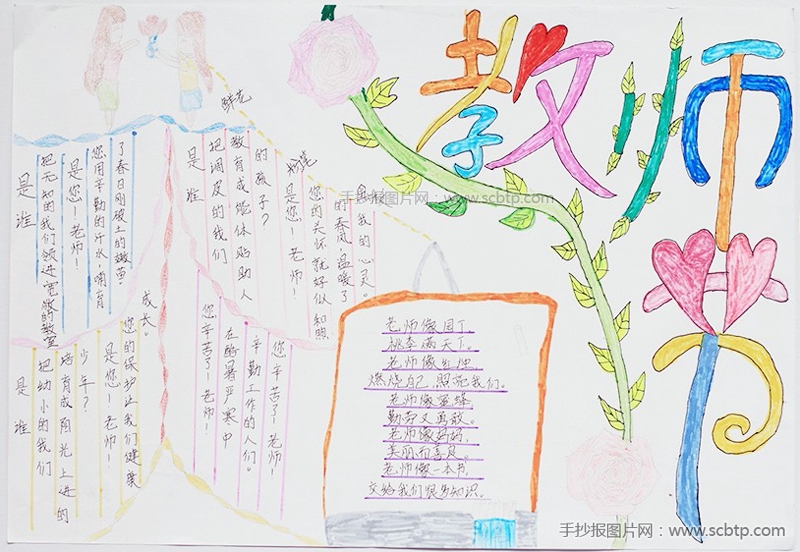 教师节
鲜花
是谁
把无知的我们领进宽敞的教室
是您!老师!
您用辛勤的汗水哺育
了春日刚破土的嫩苗。
是谁
把调皮的我们
教育成能体贴助人
的孩子?
是您!老师!
您的关怀就好似和煦
的春风温暖了
我的心灵。
是谁
把幼小的我们
培育成阳光上进的
少年?
是您!老师!
您的保护让我们健康
成长。
您辛苦了!老师!
在酷暑严寒中
辛勤工作的人们。
您辛苦了!老师!
老师像园丁,
桃李满天下。
老师像
燃烧自己,照亮我们。
老师像蜜蜂,
勤劳又勇敢。
老师像妈妈,
美丽而善良。
老师像一本书,
交给我们很多知识。
手抄报图片网:www.scbtp.com
手抄报图片网:www.scbtp.com